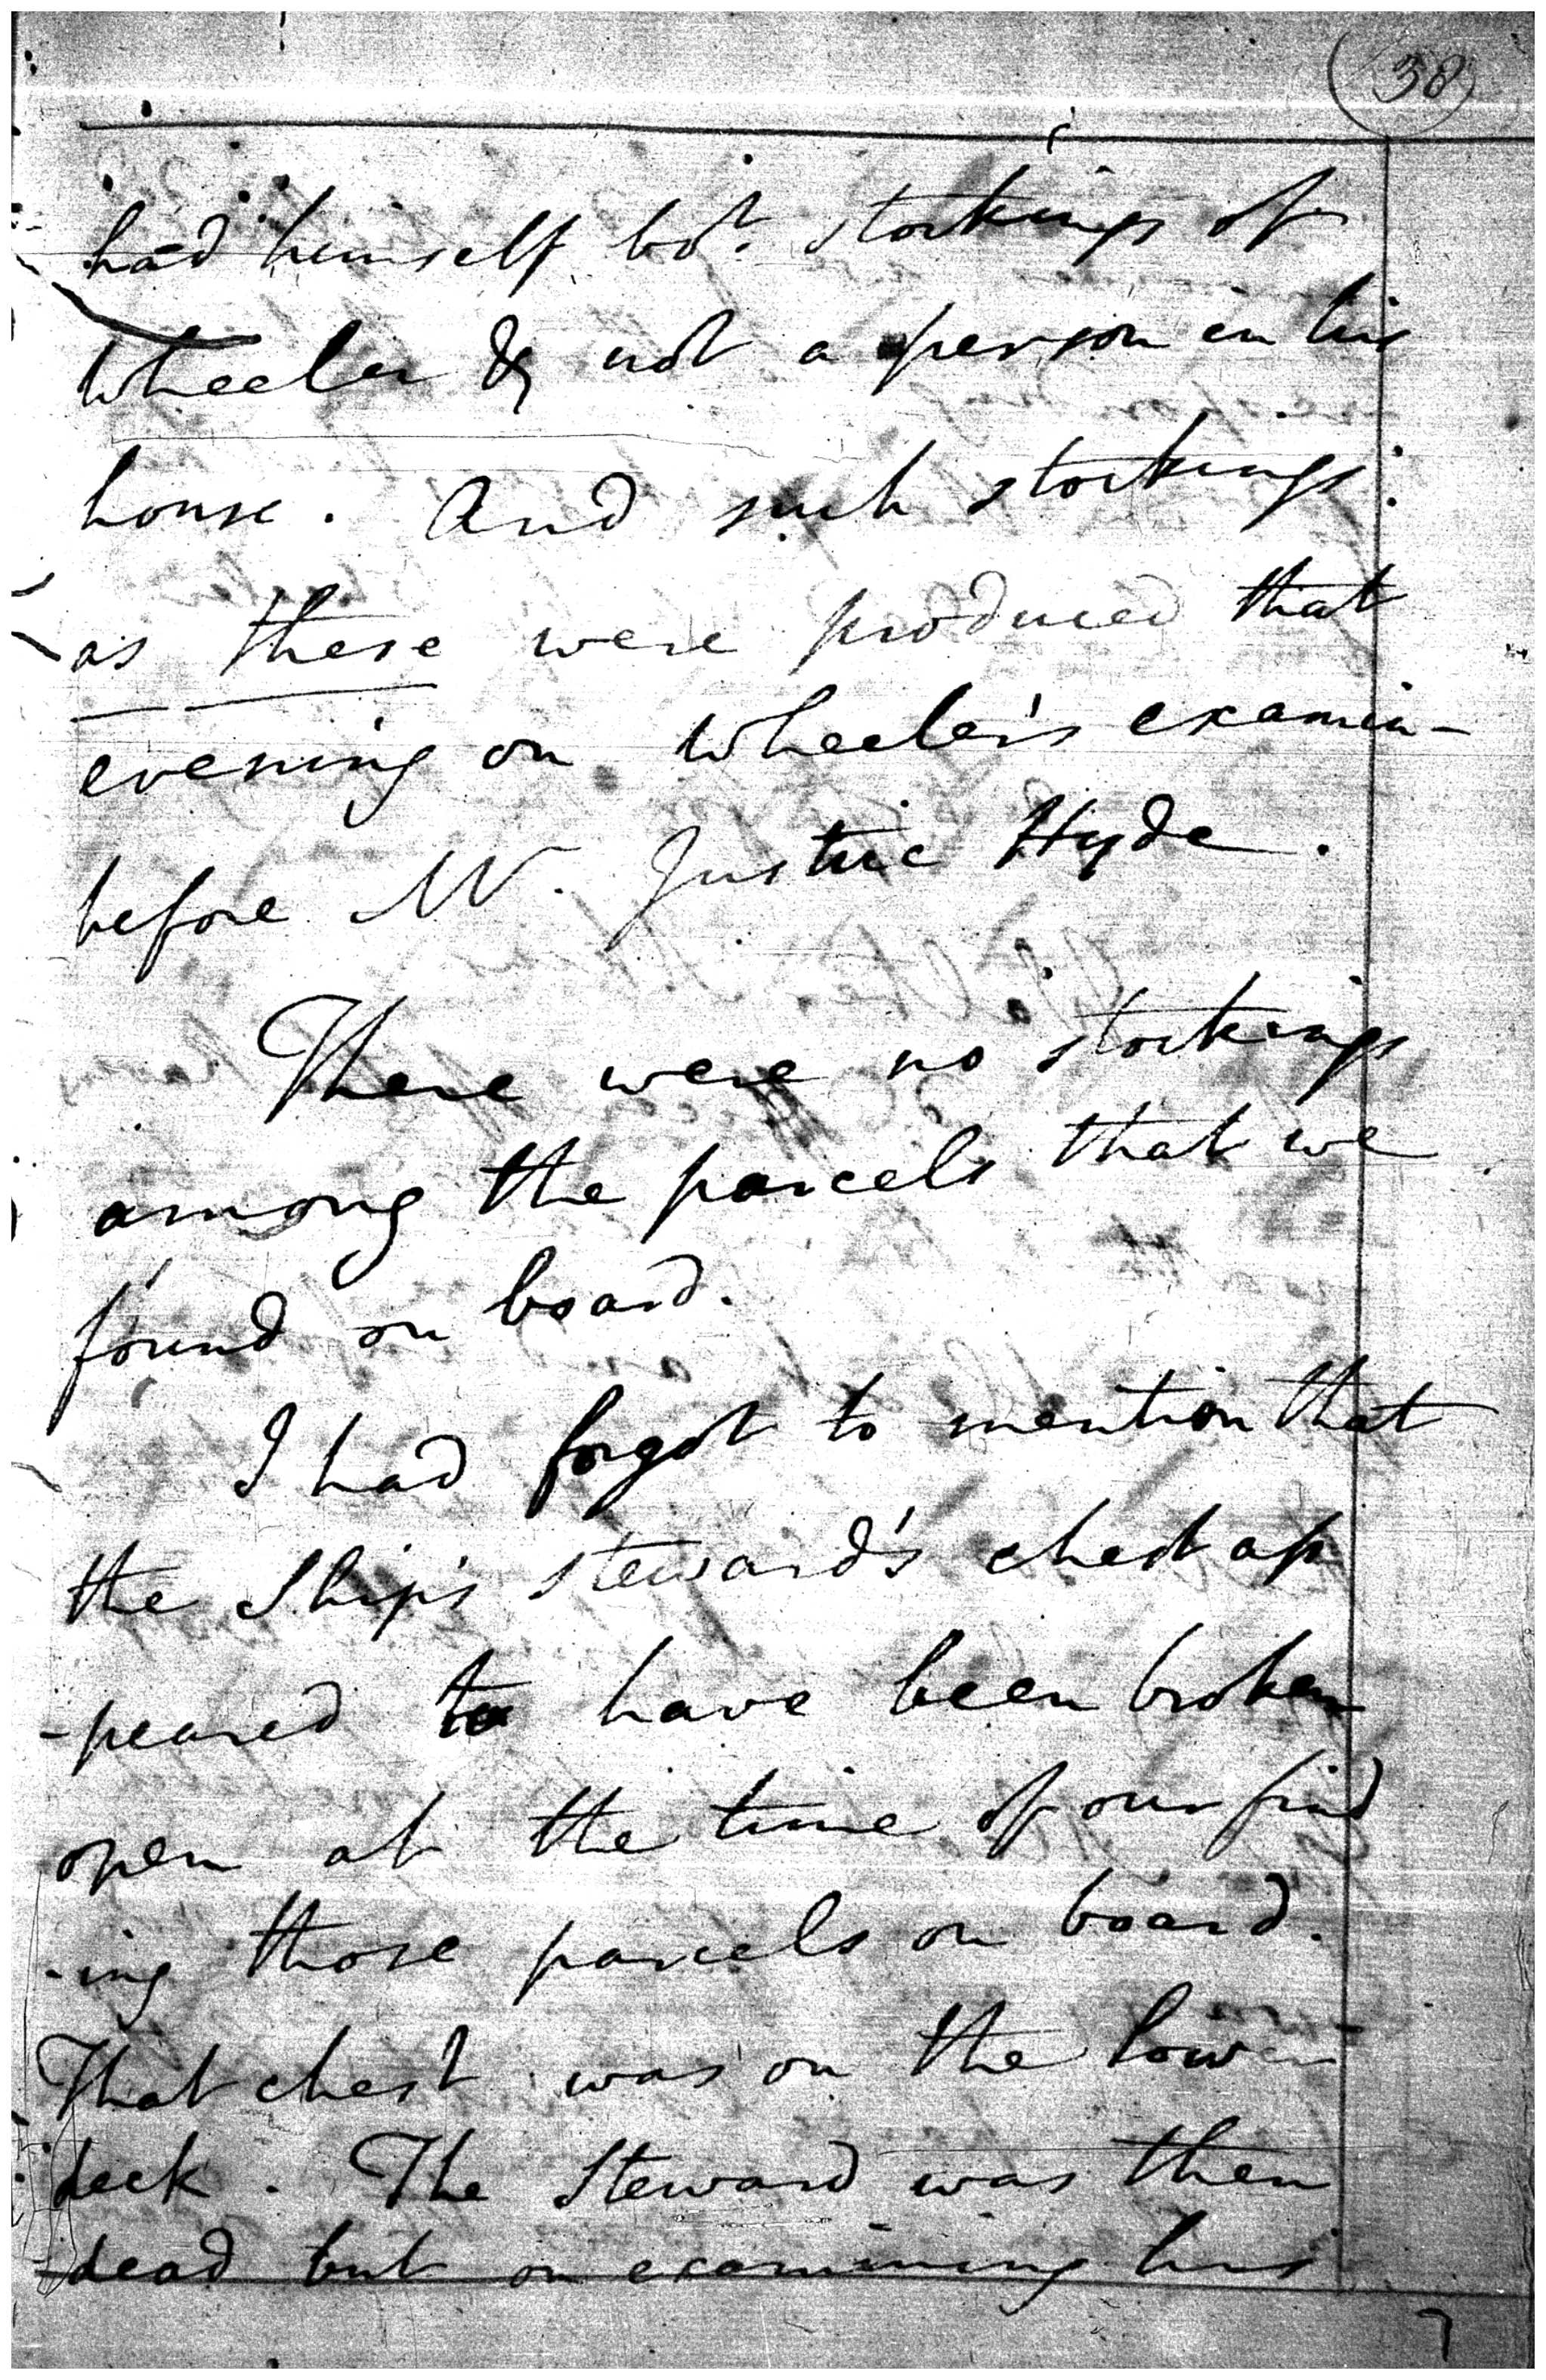 38
had himself bot. stockings of
Wheeler & not a person in his
house. And such stockings
as these were produced that
evening on Wheeler's examin-
before Mr. Justice Hyde.
There were no stockings
among the parcels that we
found on board.
I had forgot to mention that
the Ship's steward's chest ap
-peared to have been broken
open at the time of our find
-ing those parcels on board.
That chest was on the lower
deck. The Steward was then
dead but on examining his